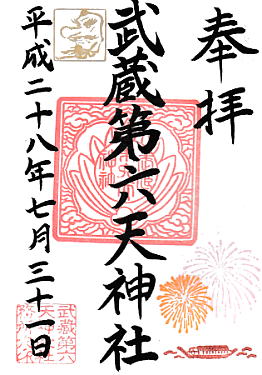 奉拝
武蔵第六天神社
平成二十八年七月三十一日
武蔵第六
天神社